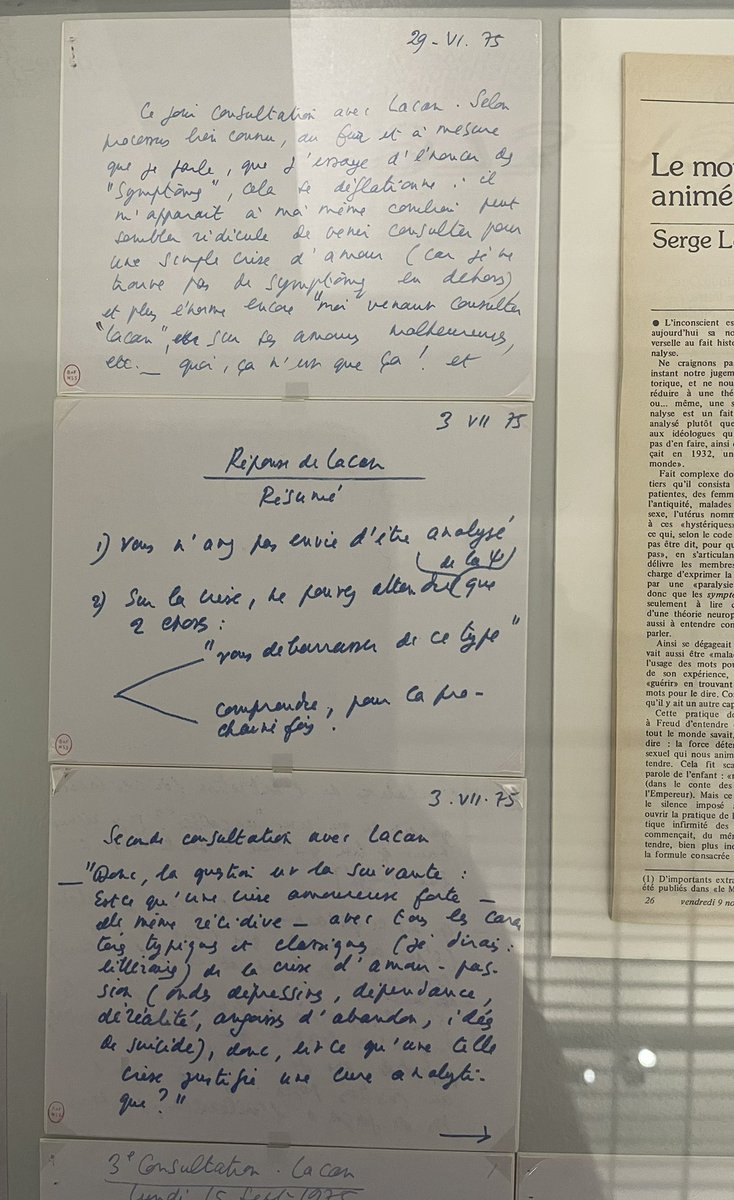 29-VI. 75
Ce jour consultation avec Lacan. Selon
processus bien connu, au fur et à mesure
que je parle, que j'essaye d'énoncer des
"symptômes", cela se déflationne : il
m'apparaît à moi même combien peut
sembler ridicule de venir consulter pour
une simple crise d'amour (car je ne
trouve pas de symptômes en dehors)
et plus énorme encore "moi" venant consulter
"Lacan", sur ses amours malheureuses,
etc. — quoi, ça n'est que ça ! et
3 VII 75
Réponse de Lacan
Résumé
1) Vous n'avez pas envie d'être analysé
de la Ψ
2) Sur la crise, ne pouvez attendre que
2 choses :
"vous débarrasser de ce type"
comprendre, pour la pro-
chaine fois.
3.VII.75
Seconde consultation avec Lacan
— "Donc, la question est la suivante :
Est-ce qu'une crise amoureuse forte —
elle même récidive — avec tous les carac
tères typiques et classiques (je dirais :
littéraires) de la crise d'amour-pas-
sion (ondes dépressives, dépendance,
déréalité, angoisses d'abandon, idées
de suicide), donc, est-ce qu'une telle
crise justifie une cure analyti-
que ?"
→
3e Consultation. Lacan
Lundi 15 Sept 1975
Le mo
animé
Serge L
● L'inconscient es
aujourd'hui sa no
verselle au fait histo
nalyse.
Ne craignons pa
instant notre jugem
torique, et ne nou
réduire à une thé
ou... même, une s
nalyse est un fait
analysé plutôt que
aux idéologues qu
pas d'en faire, ainsi
çait en 1932, un
monde».
Fait complexe do
tiers qu'il consista
patientes, des femm
l'antiquité, malades
sexe, l'utérus nomm
à ces «hystériques»
ce qui, selon le code
pas être dit, pour qu
pas», en s'articulan
délivre les membres
charge d'exprimer la
par une «paralysie
donc que les sympt
seulement à lire c
d'une théorie neurop
aussi à entendre con
parler.
Ainsi se dégageait
vait aussi être «mala
l'usage des mots pou
de son expérience,
«guérir» en trouvant
mots pour le dire. Co
qu'il y ait un autre cap
Cette pratique de
à Freud d'entendre
tout le monde savait,
dire : la force déter
sexuel qui nous anim
tendre. Cela fit sca
parole de l'enfant : «r
(dans le conte des
l'Empereur). Mais ce
le silence imposé
ouvrir la pratique de l
tique infirmité des
commençait, du mê
tendre, bien plus ine
la formule consacrée
(1) D'importants extra
été publiés dans «le M
26 vendredi 9 no